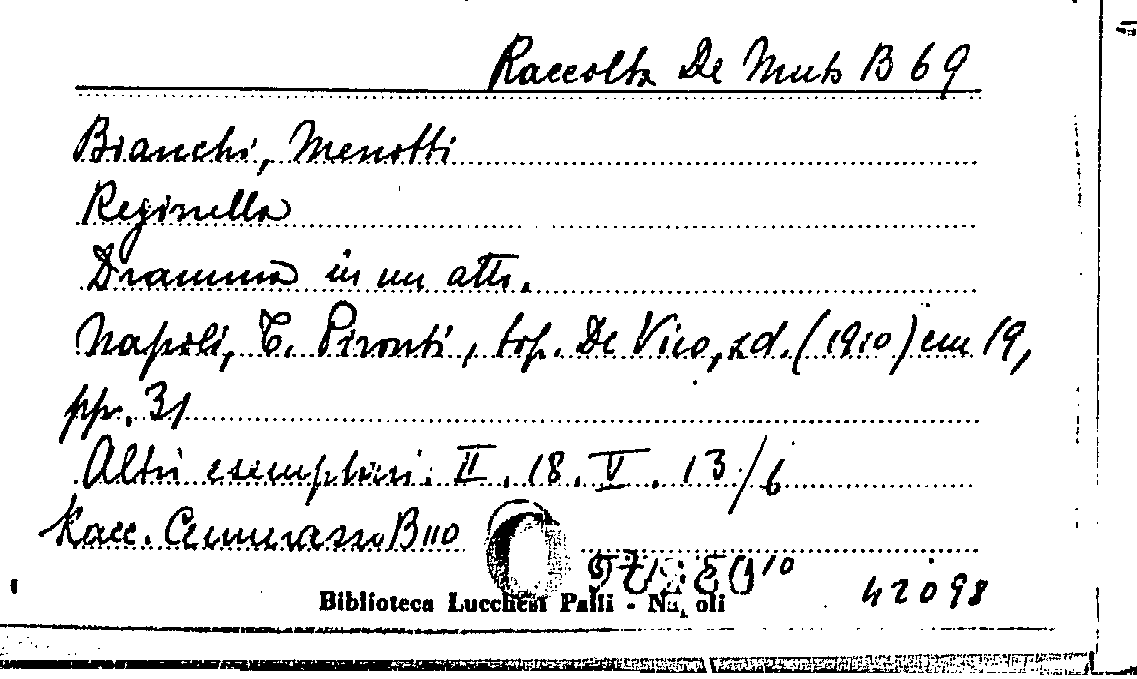 Raccolta De Muto B 69
Bianchi, Menotti
Reginella
Dramma in un atto.
Napoli, T. Pironti, tip. De Vico, s.d. (1910) cm 19,
pp. 31
Altri esemplari: II. 18. V. 13/6
Racc. B 110
Biblioteca Lucchesi Palli - Napoli
42098